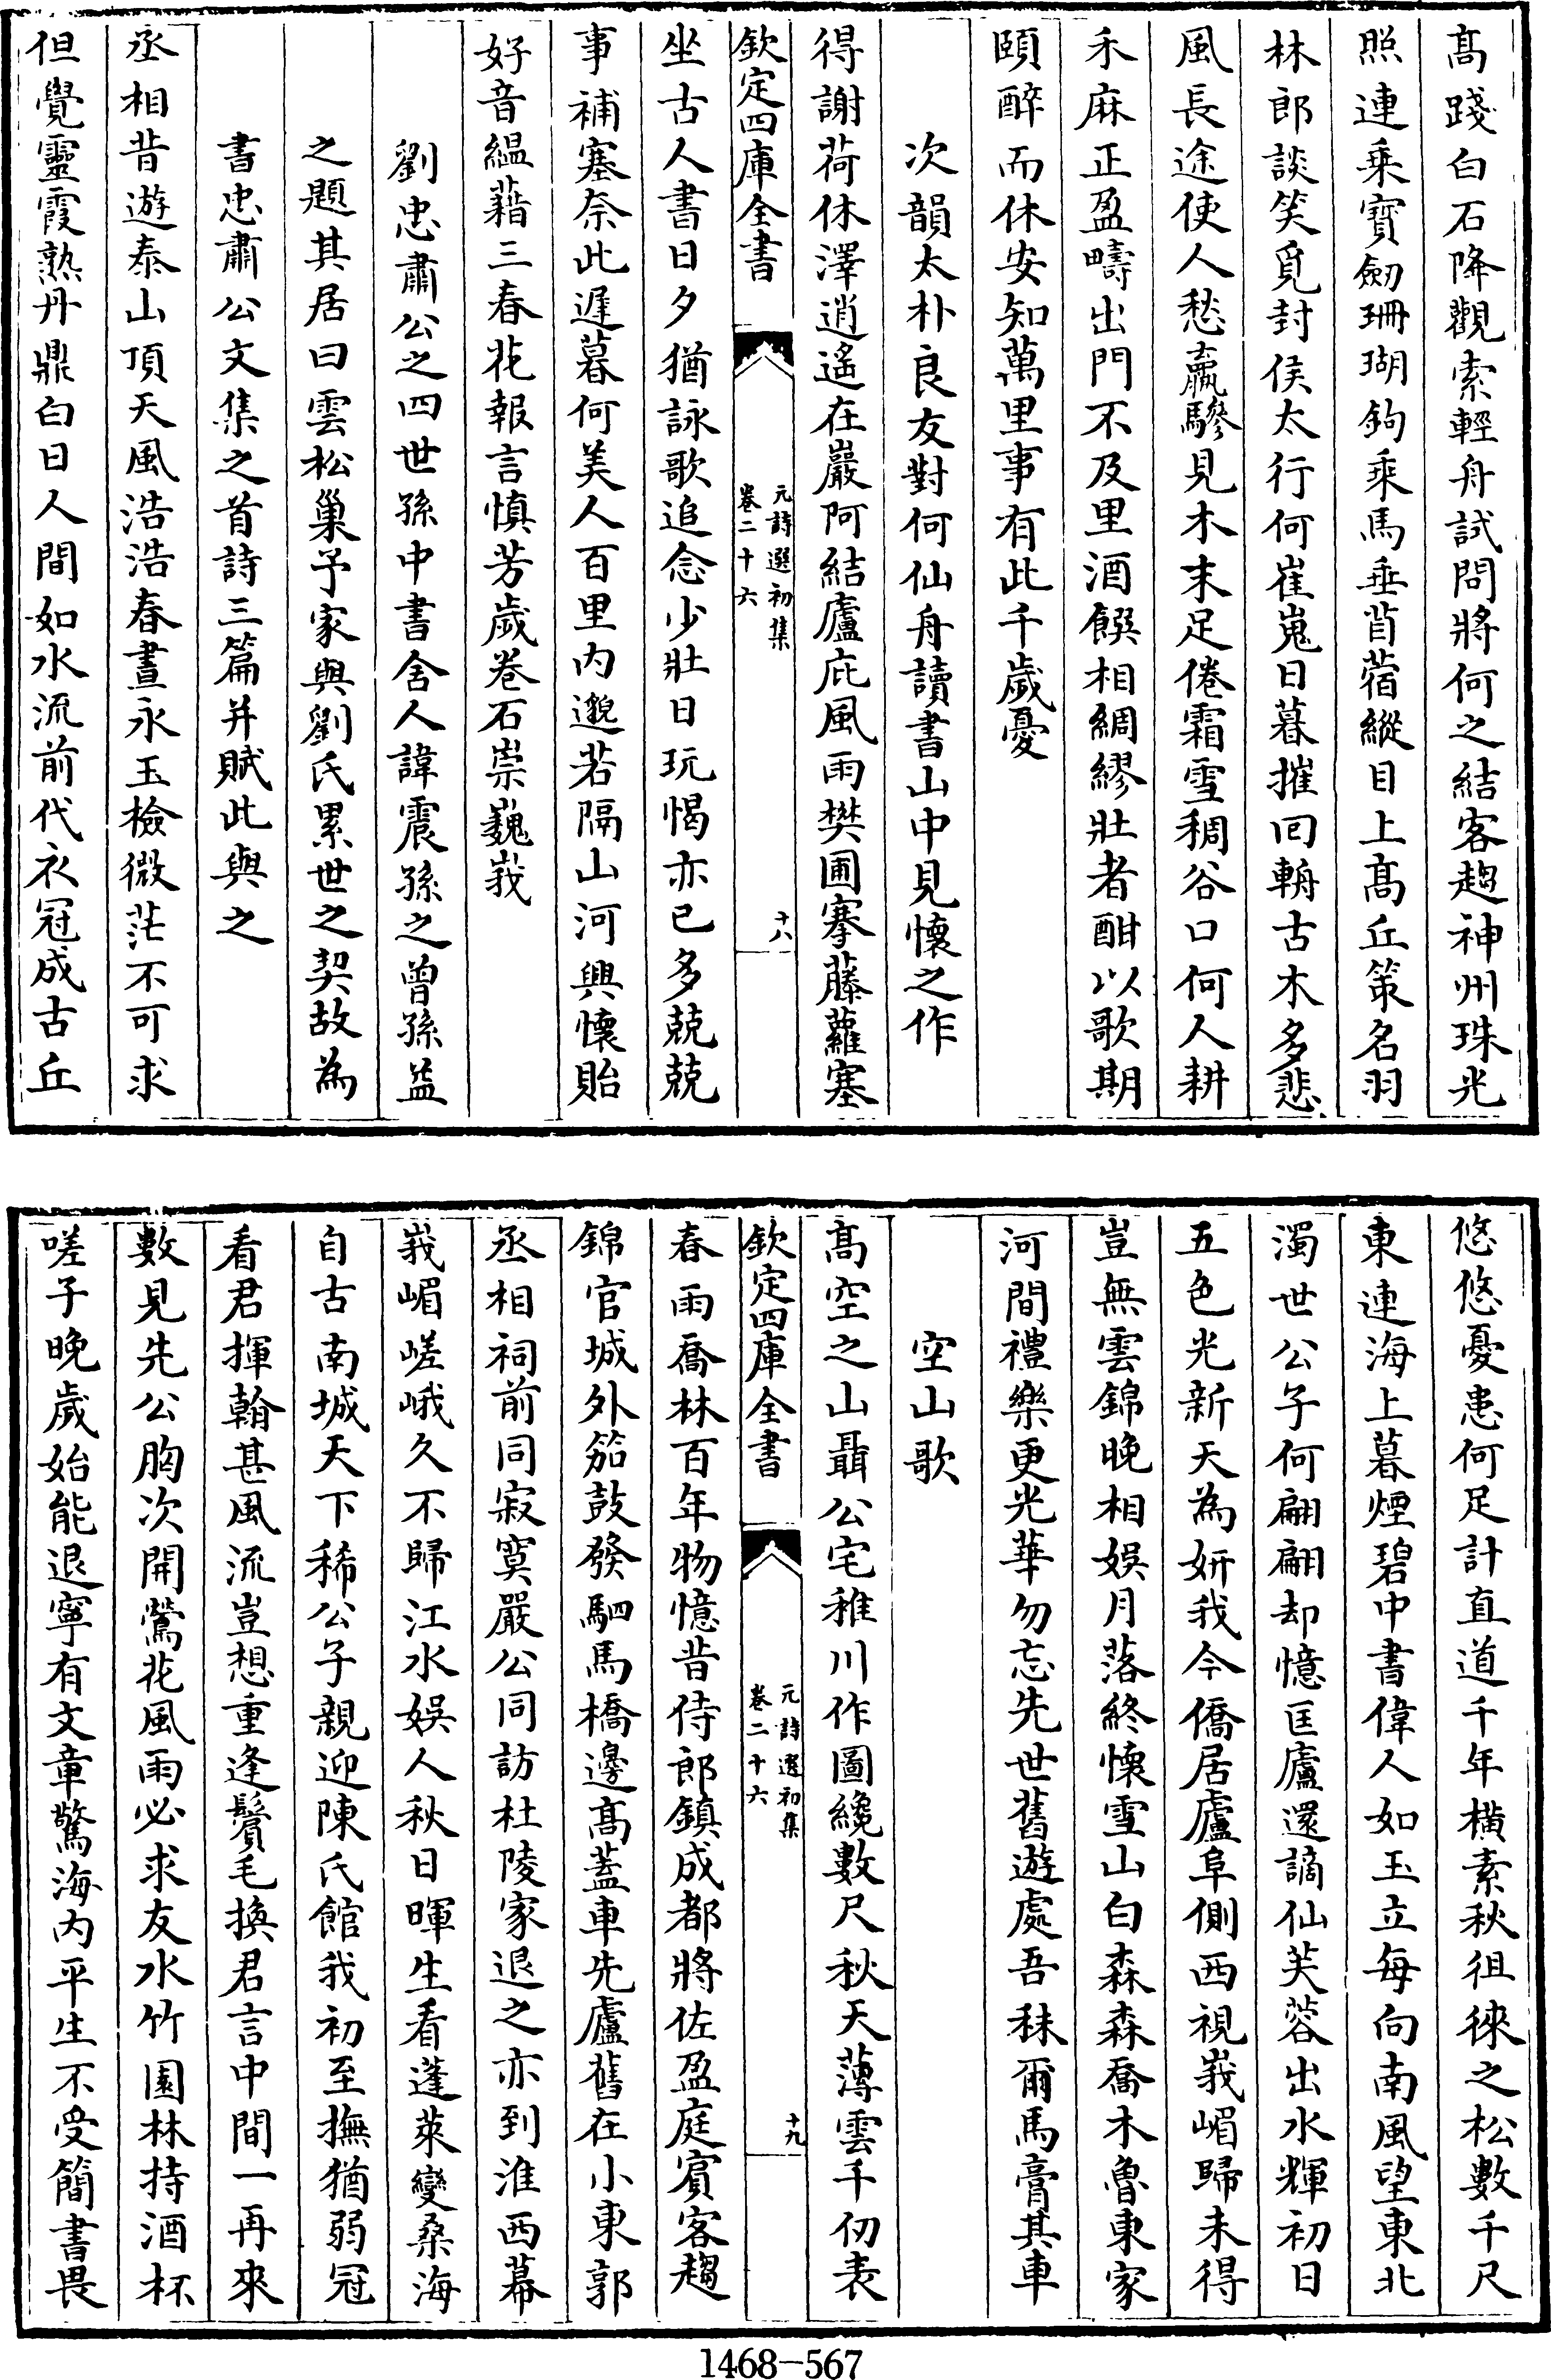 髙踐白石降觀索輕舟試問將何之結客趨神州珠光
照連乘寶劒珊瑚鉤乘馬垂苜蓿縱目上髙丘策名羽
林郎談笑覓封侯太行何崔嵬日暮摧回輈古木多悲
風長途使人愁羸驂見木末足倦霜雪稠谷口何人耕
禾麻正盈疇出門不及里酒饌相綢繆壯者酣以歌期
頤醉而休安知萬里事有此千歲憂
次韻太朴良友對何仙舟讀書山中見懷之作
得謝荷休澤逍遙在巖阿結廬庇風雨樊圃搴藤蘿塞
欽定四庫全書
元詩選初集
卷二十六
十八
坐古人書日夕猶詠歌追念少壯日玩愒亦已多兢兢
事補塞奈此遲暮何美人百里内邈若隔山河興懷貽
好音緼藉三春花報言慎芳歲卷石崇巍峩
劉忠肅公之四世孫中書舍人諱震孫之曽孫益
之題其居曰雲松巢予家與劉氏累世之契故為
書忠肅公文集之首詩三篇并賦此與之
丞相昔遊泰山頂天風浩浩春晝永玉檢微茫不可求
但覺靈霞熟丹鼎白日人間如水流前代衣冠成古丘
悠悠憂患何足計直道千年横素秋徂徠之松數千尺
東連海上暮煙碧中書偉人如玉立每向南風望東北
濁世公子何翩翩却憶匡廬還謫仙芙蓉出水輝初日
五色光新天為妍我今僑居廬阜側西視峩嵋歸未得
豈無雲錦晚相娯月落終懷雪山白森森喬木魯東家
河間禮樂更光華勿忘先世舊遊處吾秣爾馬膏其車
空山歌
髙空之山聶公宅稚川作圖纔數尺秋天薄雲千仞表
欽定四庫全書
元詩選初集
卷二十六
十九
春雨喬林百年物憶昔侍郎鎮成都將佐盈庭賓客趨
錦官城外笳鼓發駟馬橋邊髙蓋車先廬舊在小東郭
丞相祠前同寂寞嚴公同訪杜陵家退之亦到淮西幕
峩嵋嵯峨久不歸江水娯人秋日暉生看蓬萊變桑海
自古南城天下稀公子親迎陳氏館我初至撫猶弱冠
看君揮翰甚風流豈想重逢鬢毛換君言中間一再來
數見先公胸次開鶯花風雨必求友水竹園林持酒杯
嗟予晚歲始能退寧有文章驚海内平生不受簡書畏
1468-567